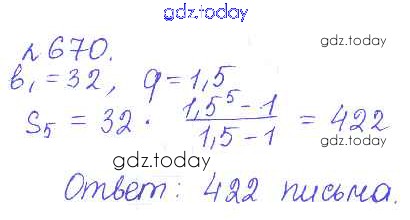 gdz.today
№ 670.
gdz.today
b₁ = 32, q = 1,5
S₅ = 32 · (1,5⁵ - 1)/(1,5 - 1) = 422
gdz.today
gdz.today
Ответ: 422 письма.